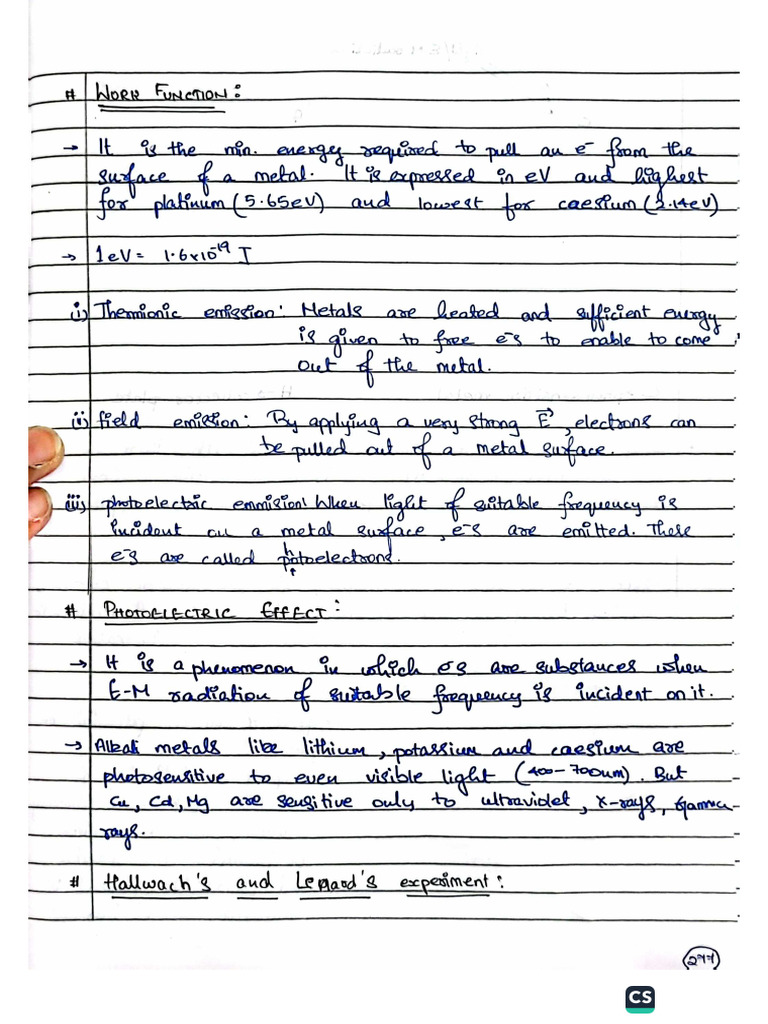 # WORK FUNCTION:
→ It is the min. energy required to pull an e⁻ from the
surface of a metal. It is expressed in eV and highest
for platinum (5.65eV) and lowest for caesium (2.14eV)
→ 1eV = 1.6x10⁻¹⁹ J
i) Thermionic emission: Metals are heated and sufficient energy
is given to free e⁻s to enable to come
out of the metal.
ii) field emission: By applying a very strong E⃗, electrons can
be pulled out of a metal surface.
iii) photoelectric emmision: When light of suitable frequency is
incident on a metal surface, e⁻s are emitted. These
e⁻s are called photoelectrons.
# PHOTOELECTRIC EFFECT:
→ It is a phenomenon in which es are substances when
E-M radiation of suitable frequency is incident on it.
→ Alkali metals like lithium, potassium and caesium are
photosensitive to even visible light (400-700nm). But
Cu, Cd, Mg are sensitive only to ultraviolet, x-rays, Gamma-
rays.
# Hallwach's and Lenard's experiment:
CS